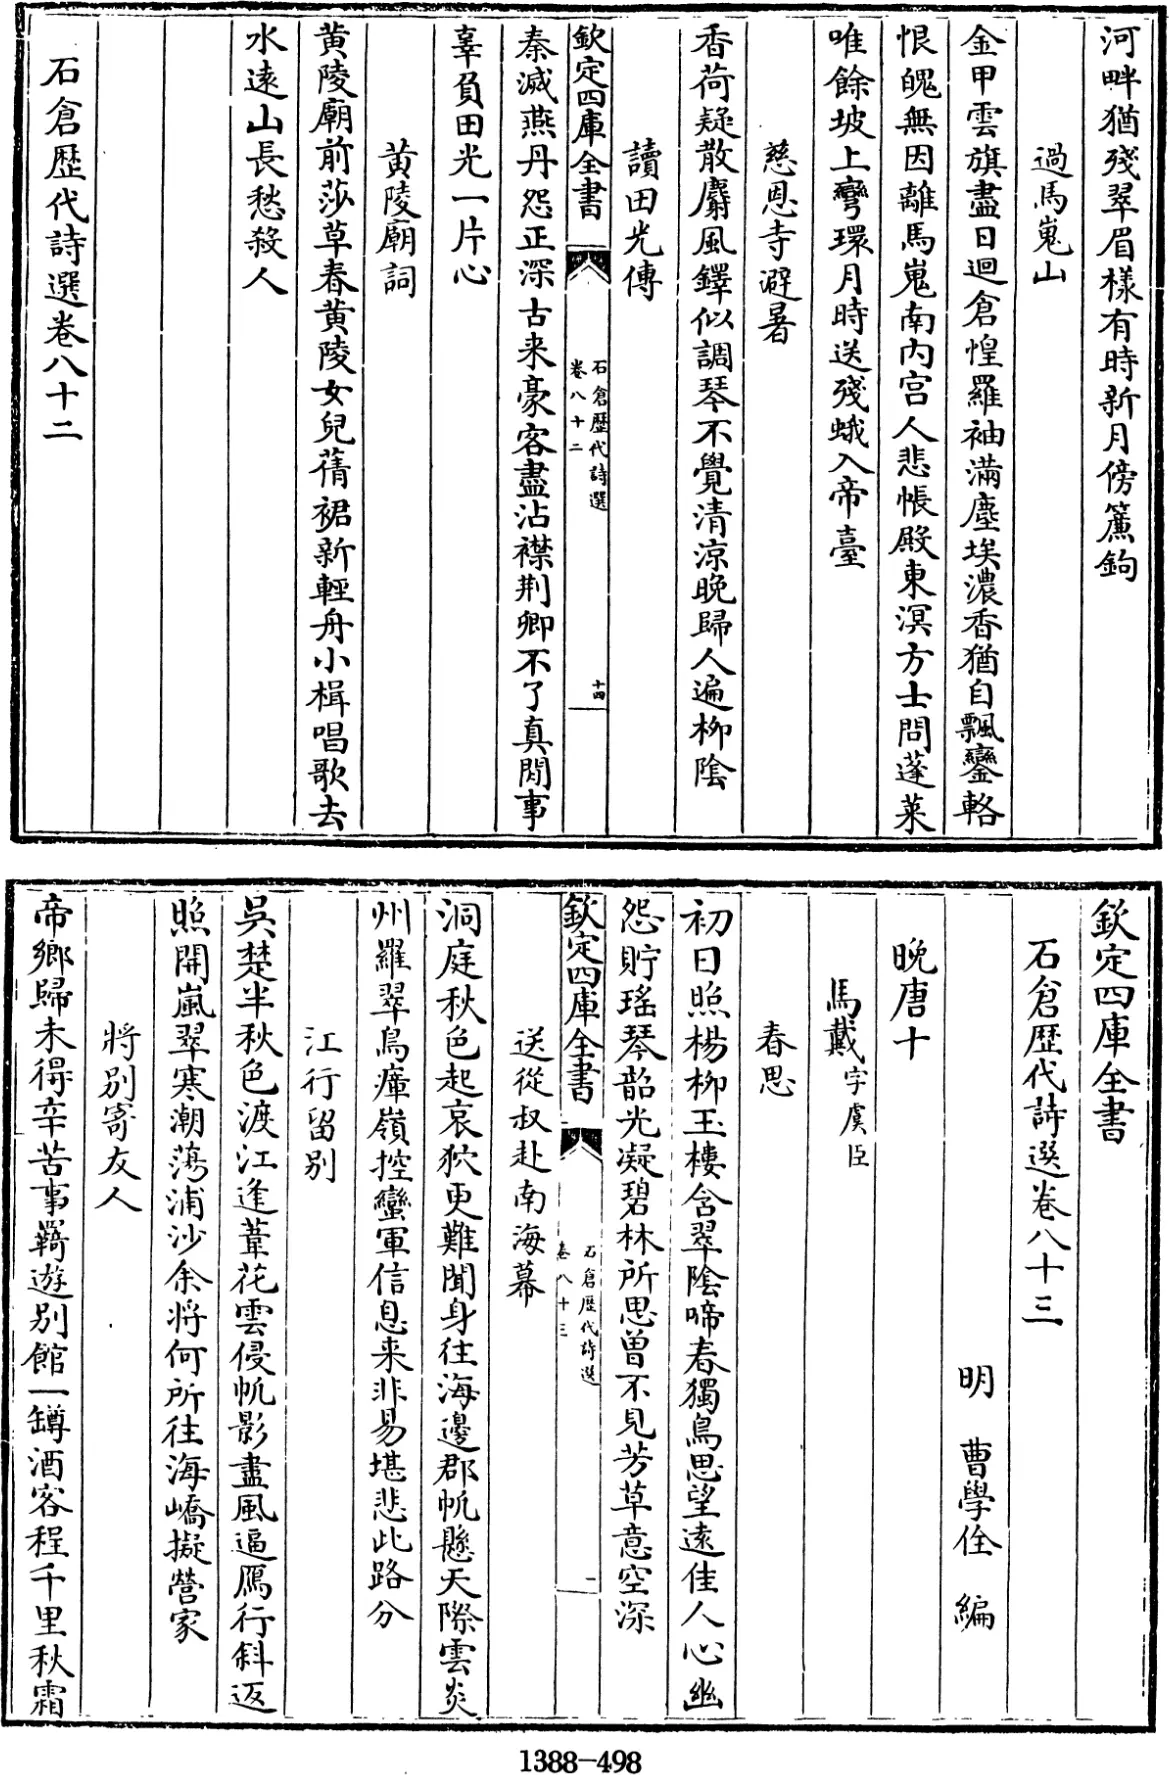 河畔猶殘翠眉樣有時新月傍簾鉤
過馬嵬山
金甲雲旗盡日迴倉惶羅袖滿塵埃濃香猶自飄鑾輅
恨魄無因離馬嵬南內宮人悲帳殿東溟方士問蓬萊
唯餘坡上彎環月時送殘蛾入帝臺
慈恩寺避暑
香荷疑散麝風鐸似調琴不覺清涼晚歸人遍柳陰
讀田光傳
欽定四庫全書
石倉歷代詩選
卷八十二
十四
秦滅燕丹怨正深古来豪客盡沾襟荆卿不了真閒事
辜負田光一片心
黄陵廟詞
黄陵廟前莎草春黄陵女兒蒨裙新輕舟小楫唱歌去
水遠山長愁殺人
石倉歷代詩選卷八十二
欽定四庫全書
石倉歷代詩選卷八十三
明 曹學佺 編
晚唐十
馬戴字虞臣
春思
初日照楊柳玉樓含翠陰啼春獨鳥思望遠佳人心幽
怨貯瑤琴韶光凝碧林所思曽不見芳草意空深
欽定四庫全書
石倉歷代詩選
卷八十三
一
送從叔赴南海幕
洞庭秋色起哀狖更難聞身往海邊郡帆懸天際雲炎
州羅翠鳥瘴嶺控蠻軍信息来非易堪悲此路分
江行留别
吳楚半秋色渡江逢葦花雲侵帆影盡風逼鴈行斜返
照開嵐翠寒潮蕩浦沙余將何所往海嶠擬營家
將别寄友人
帝鄉歸未得辛苦事羇遊别館一罇酒客程千里秋霜
1388-498